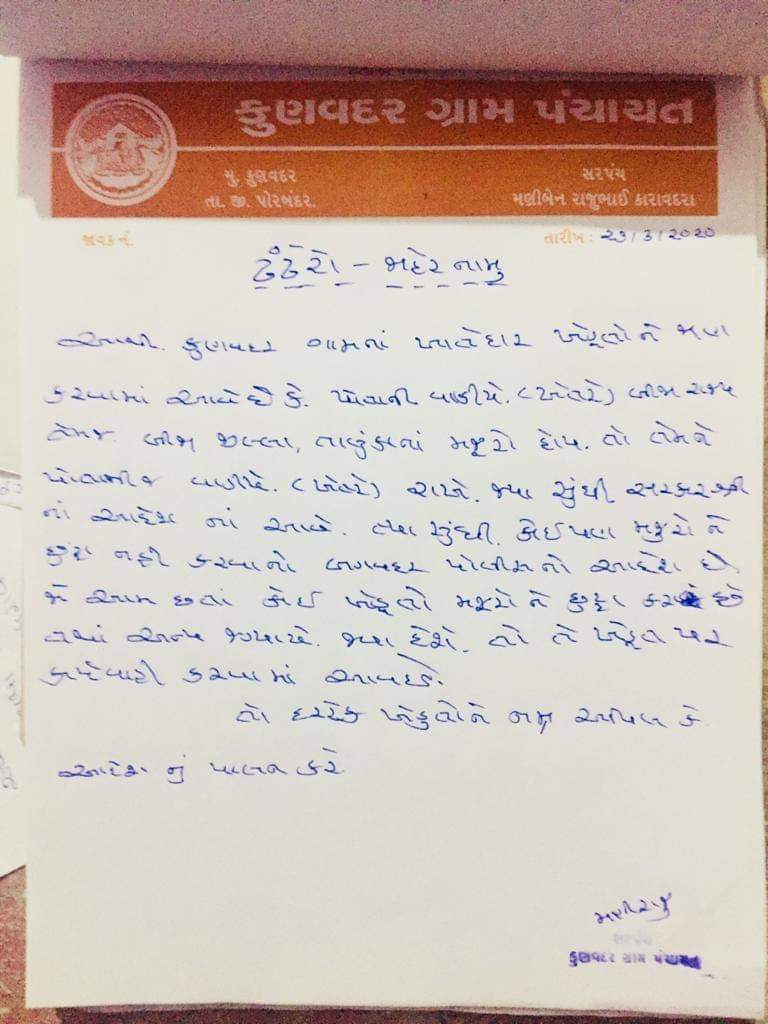 કુણવદર ગ્રામ પંચાયત
મુ. કુણવદર
તા. જી. પોરબંદર.
સરપંચ
મણીબેન રાજુભાઈ કારાવદરા
જાવક નં.
તારીખ: 29/3/2020
ઢંઢેરો - જાહેરનામુ
આથી. કુણવદર ગામનાં ખાતેદાર ખેડૂતો ને જાણ
કરવામાં આવે છે કે. પોતાની વાડીયે. (ખેતરે) બીજા રાજ્ય
તેમજ બીજા જીલ્લા, તાલુકાનાં મજૂરો હોય. તો તેમને
પોતાનીજ વાડીયે. (ખેતરે) રાખે. જ્યા સુંધી સરકારશ્રી
નાં આદેશ નાં આવે. ત્યા સુંધી. કોઈપણ મજુરો ને
છુટા નહી કરવાનો બગવદર પોલીસનો આદેશ છે
જે આમ છતાં કોઈ ખેડૂતો મજૂરો ને છુટા કરશે
તથાં અન્ય જગ્યાયે. જવા દેશે. તો તે ખેડૂત પર
કાર્યવાહી કરવામાં આવશે.
તો દરેક ખેડુતોને નમ્ર અપીલ કે
આદેશ નું પાલન કરે
મણીરાજુ
સરપંચ
કુણવદર ગ્રામ પંચાયત